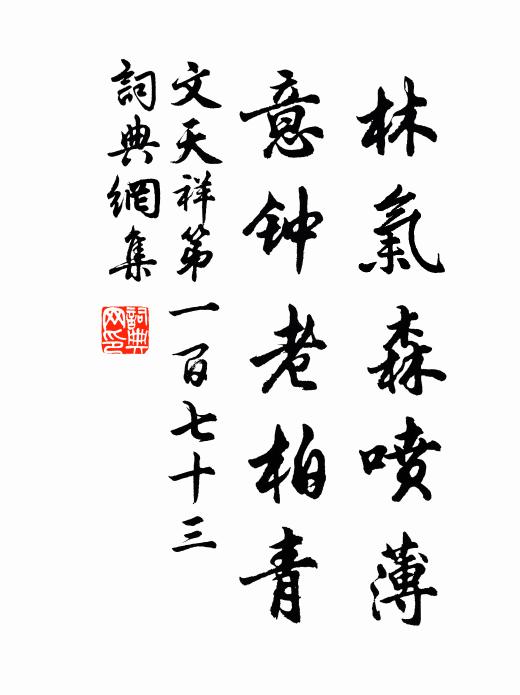 林氣森噴薄
意钟老柏青
文天祥第一百七十三
詞典網集
詞典网印